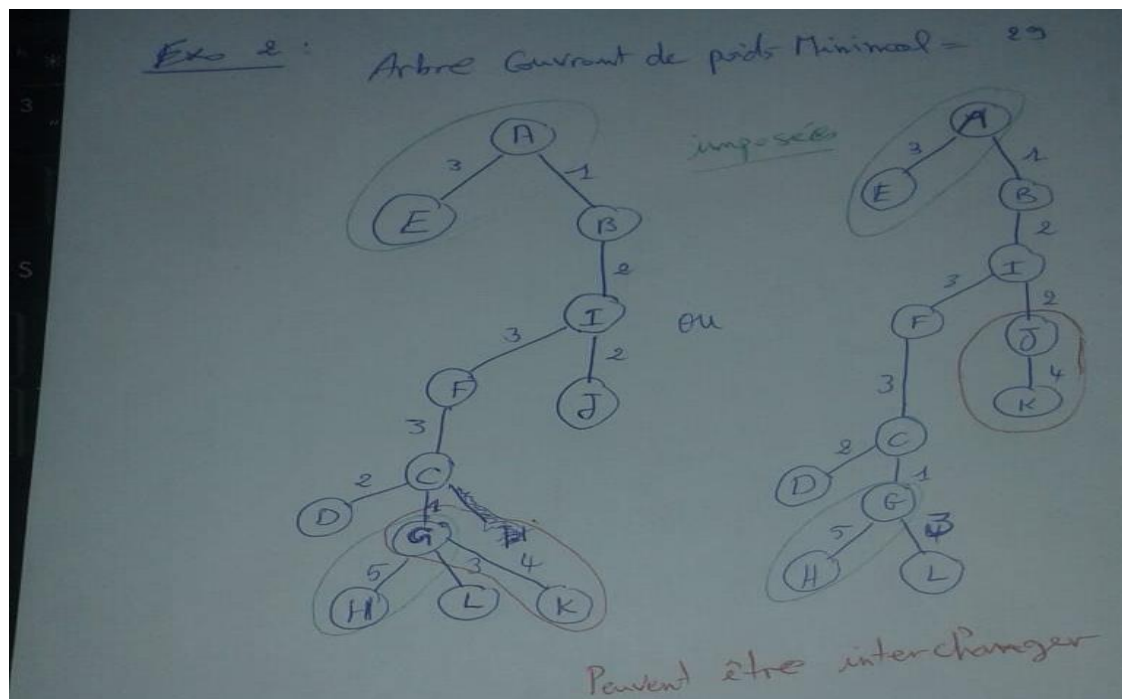 Exo 2 : Arbre Couvrant de poids Minimal = 29
imposée
A
3 1
E B
2
I
3 2
F J
3
C
2 1
D G
5 3 4
H L K
ou
A
3 1
E B
2
I
3 2
F J
3 4
K
C
2 1
D G
5 3
H L
Peuvent être interchanger